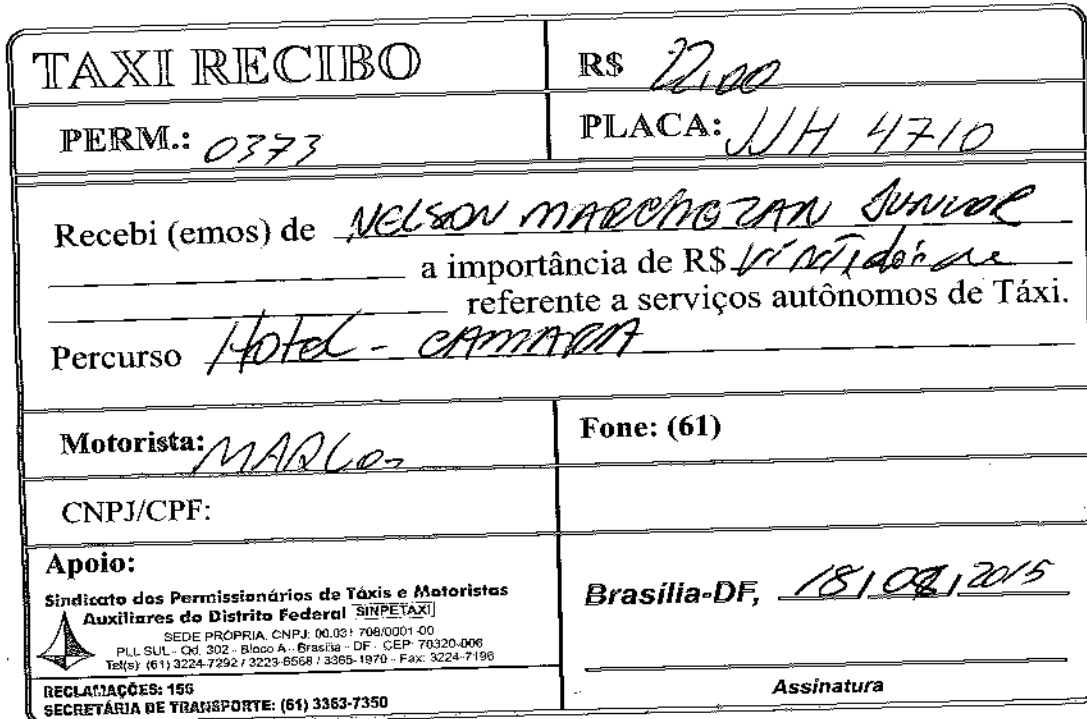 TAXI RECIBO
R$ 22,00
PERM.: 0373
PLACA: JJH 4710
Recebi (emos) de NELSON MARCHEZAN JUNIOR
a importância de R$
referente a serviços autônomos de Táxi.
Percurso Hotel - CAMARA
Motorista: MARCOS
Fone: (61)
CNPJ/CPF:
Apoio:
Sindicato dos Permissionários de Táxis e Motoristas
Auxiliares do Distrito Federal SINPETAXI
SEDE PRÓPRIA, CNPJ: 00.031.708/0001-00
PLL SUL - Qd. 302 - Bloco A - Brasília - DF - CEP: 70320-006
Tel(s): (61) 3224-7292 / 3223-6568 / 3365-1970 - Fax: 3224-7196
RECLAMAÇÕES: 156
SECRETÁRIA DE TRANSPORTE: (61) 3363-7350
Brasília-DF, 18/08/2015
Assinatura